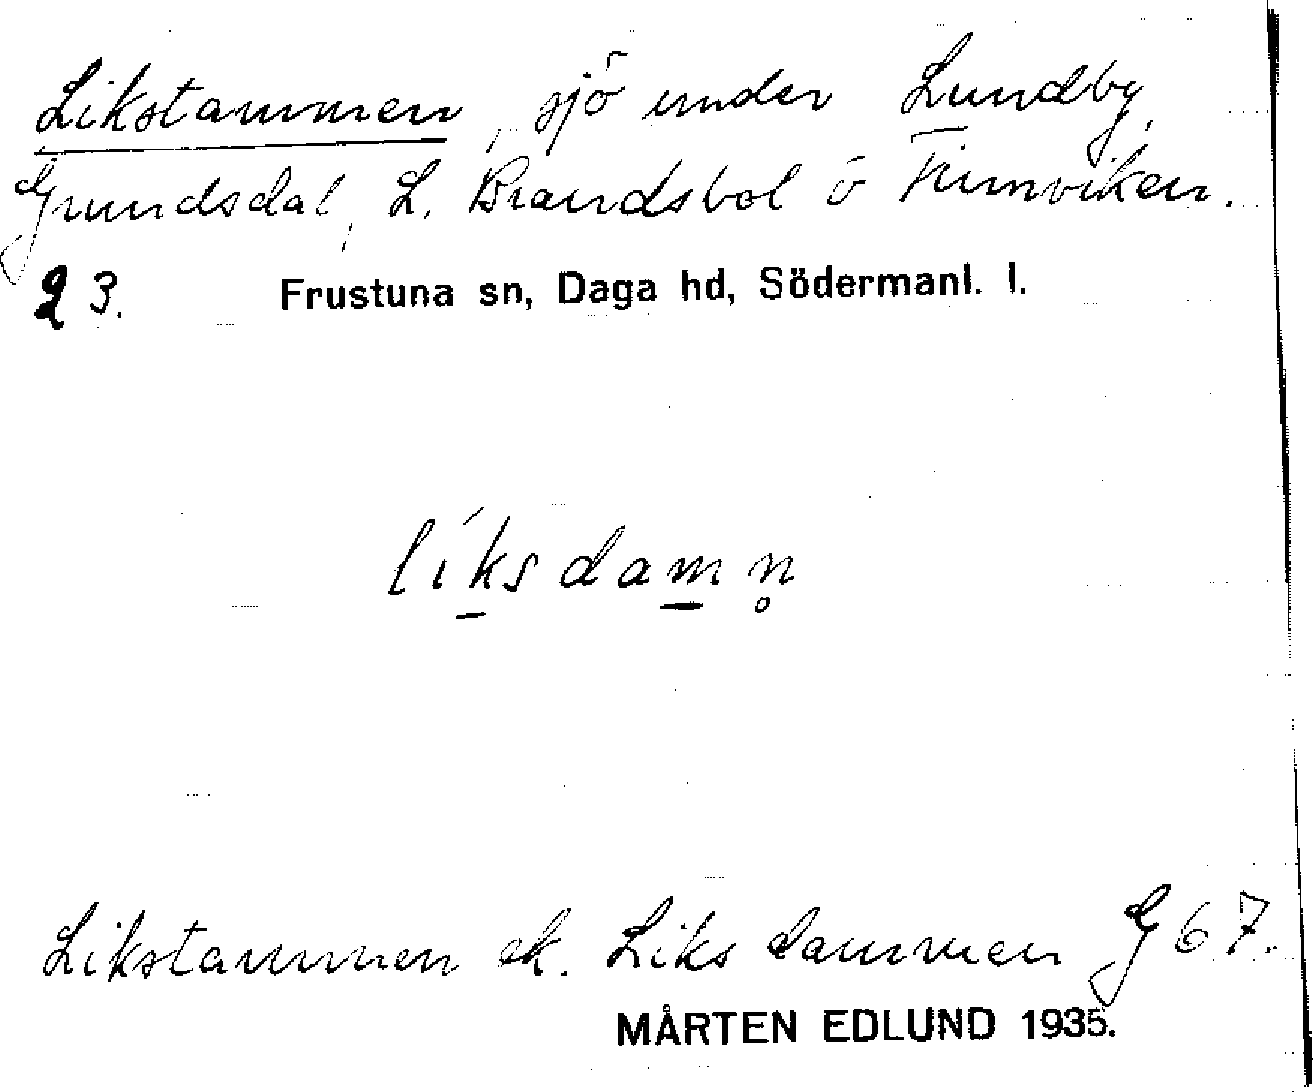 Likstammen, sjö under Lundby,
Grundsdal, L. Brandsbol o Finnviken.
23. Frustuna sn, Daga hd, Södermanl. l.
líksdamn̥
Likstammen ek. Liksdammen G 67.
MÅRTEN EDLUND 1935.